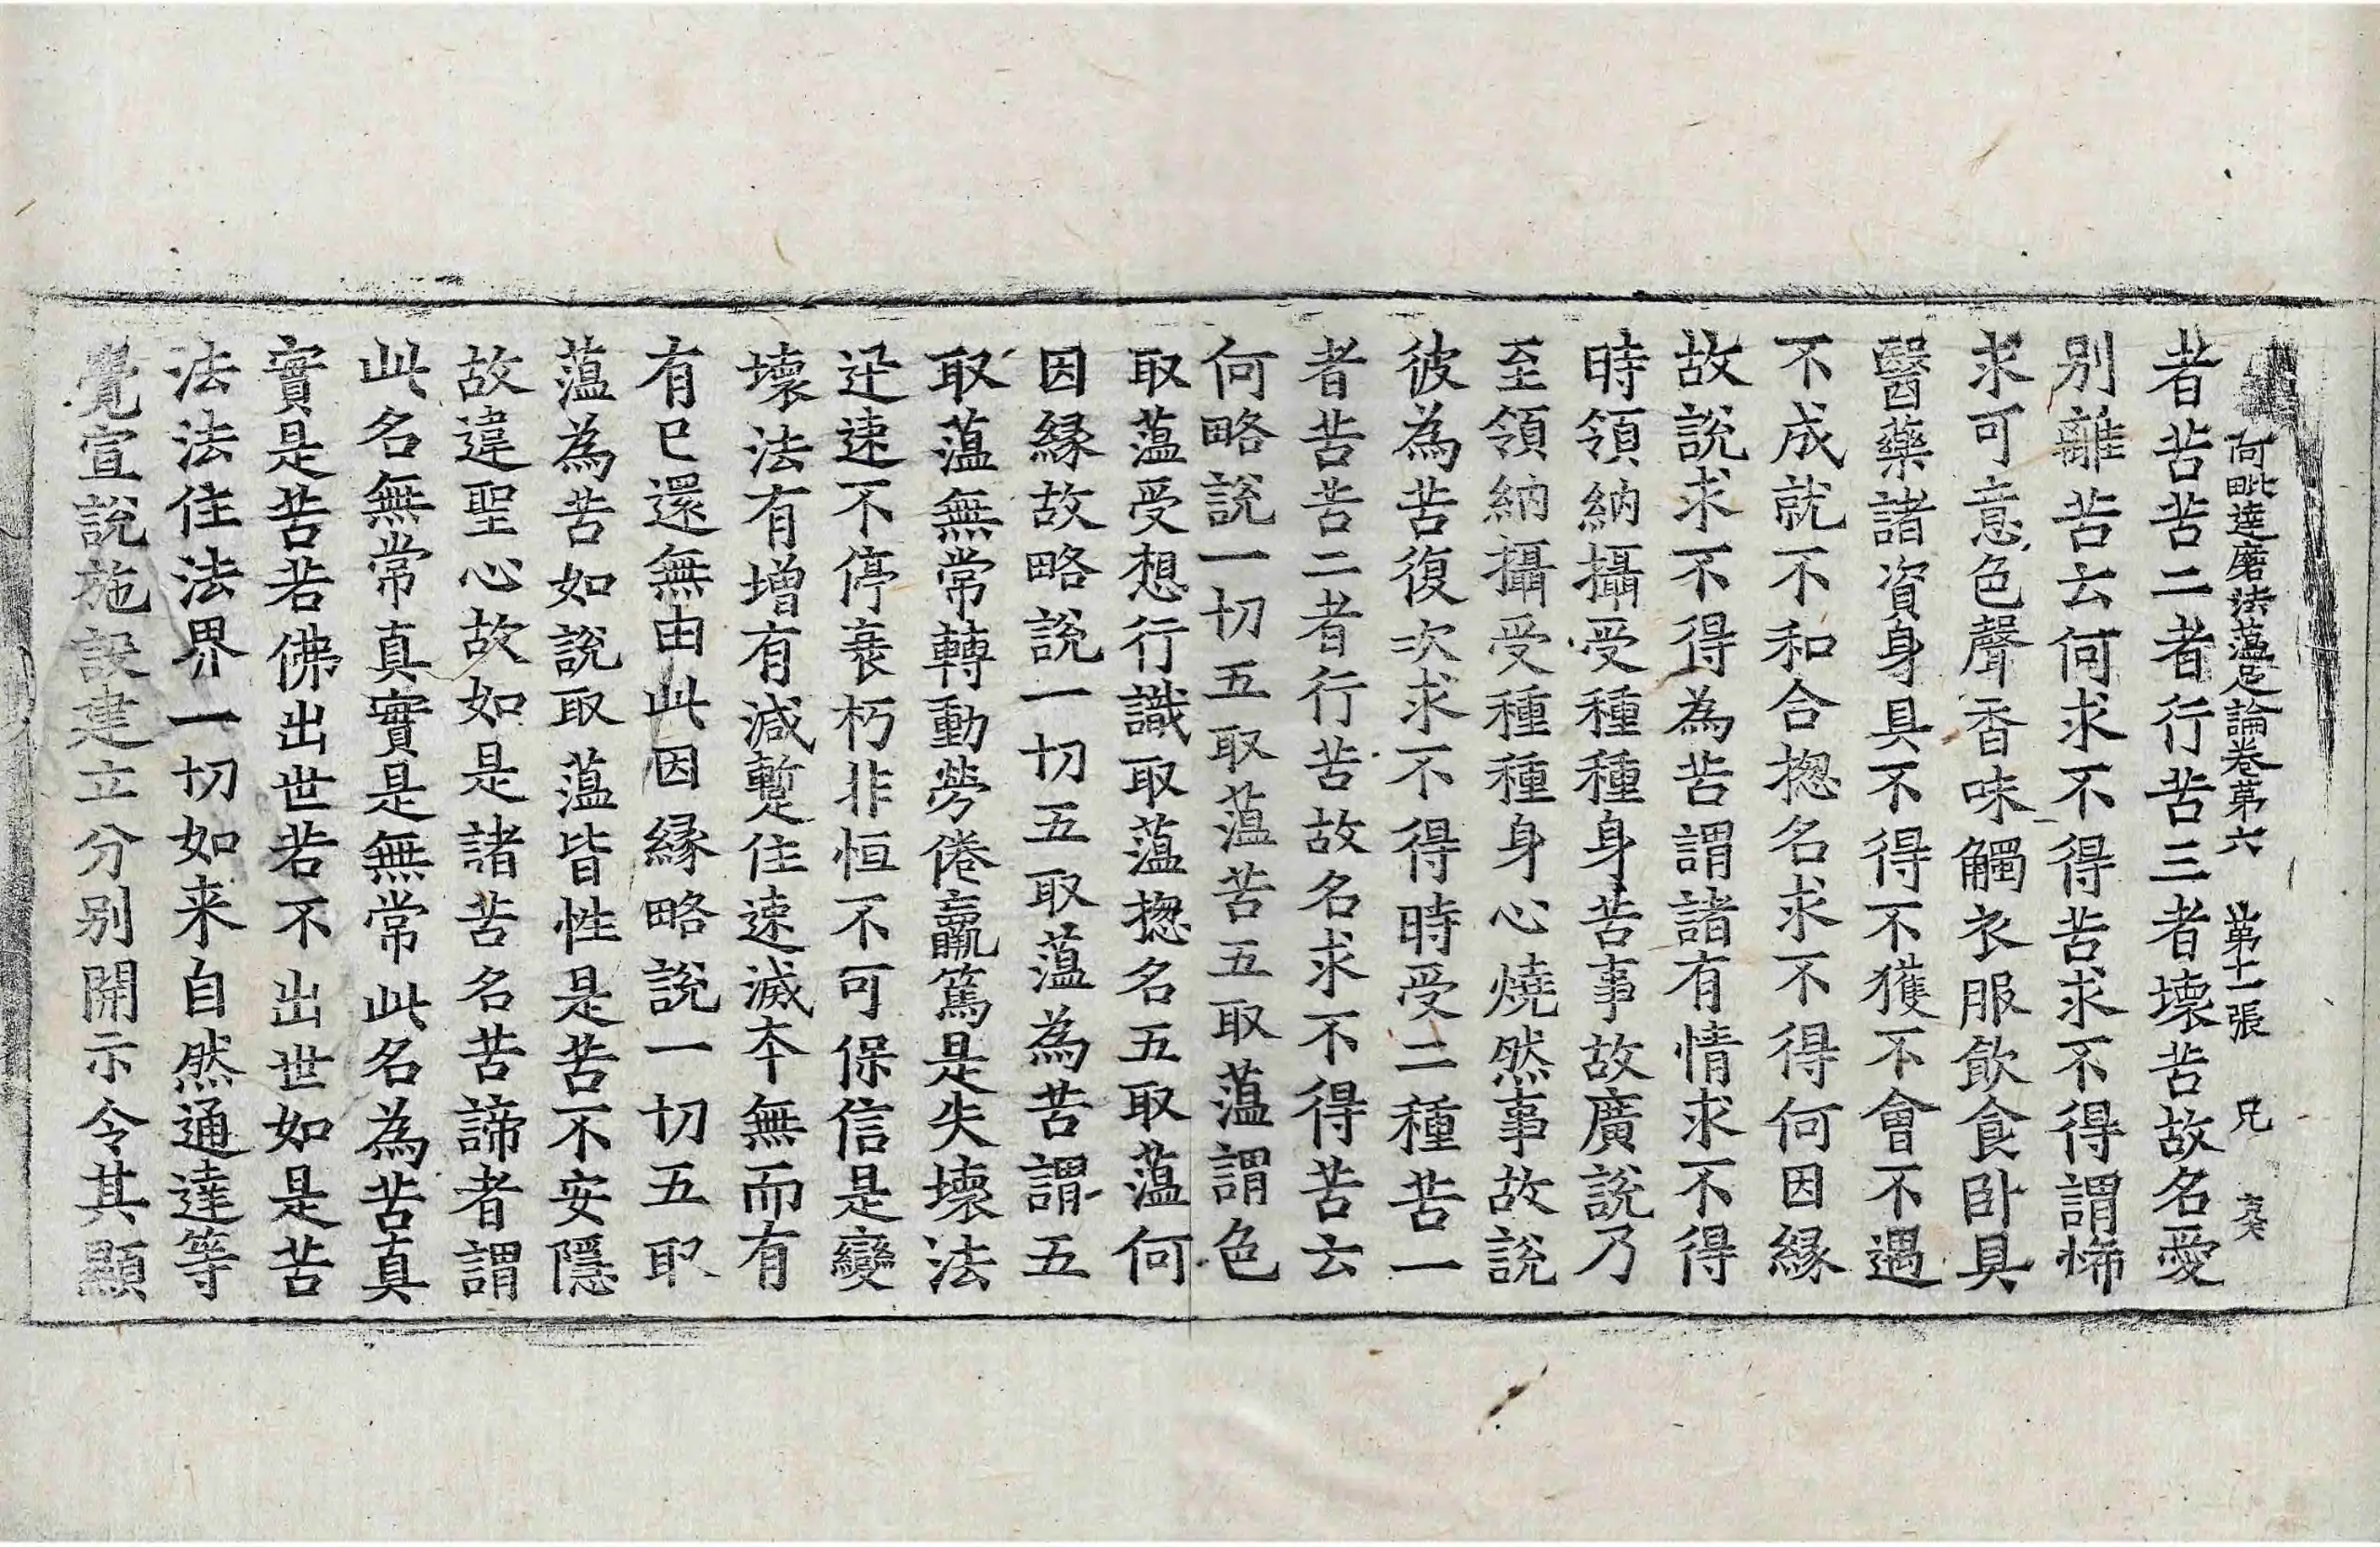 阿毗達磨法蘊足論卷第六 第十一張 兄
者苦苦二者行苦三者壞苦故名愛
別離苦云何求不得苦求不得謂悕
求可意色聲香味觸衣服飲食卧具
醫藥諸資身具不得不獲不會不遇
不成就不和合揔名求不得何因緣
故說求不得為苦謂諸有情求不得
時領納攝受種種身苦事故廣說乃
至領納攝受種種身心燒然事故說
彼為苦復次求不得時受二種苦一
者苦苦二者行苦故名求不得苦云
何略說一切五取蘊苦五取蘊謂色
取蘊受想行識取蘊揔名五取蘊何
因緣故略說一切五取蘊為苦謂五
取蘊無常轉動勞倦羸篤是失壞法
迅速不停衰朽非恒不可保信是變
壞法有增有減暫住速滅本無而有
有已還無由此因緣略說一切五取
蘊為苦如說取蘊皆性是苦不安隱
故違聖心故如是諸苦名苦諦者謂
此名無常真實是無常此名為苦真
實是苦若佛出世若不出世如是苦
法法住法界一切如来自然通達等
覺宣說施設建立分別開示令其顯